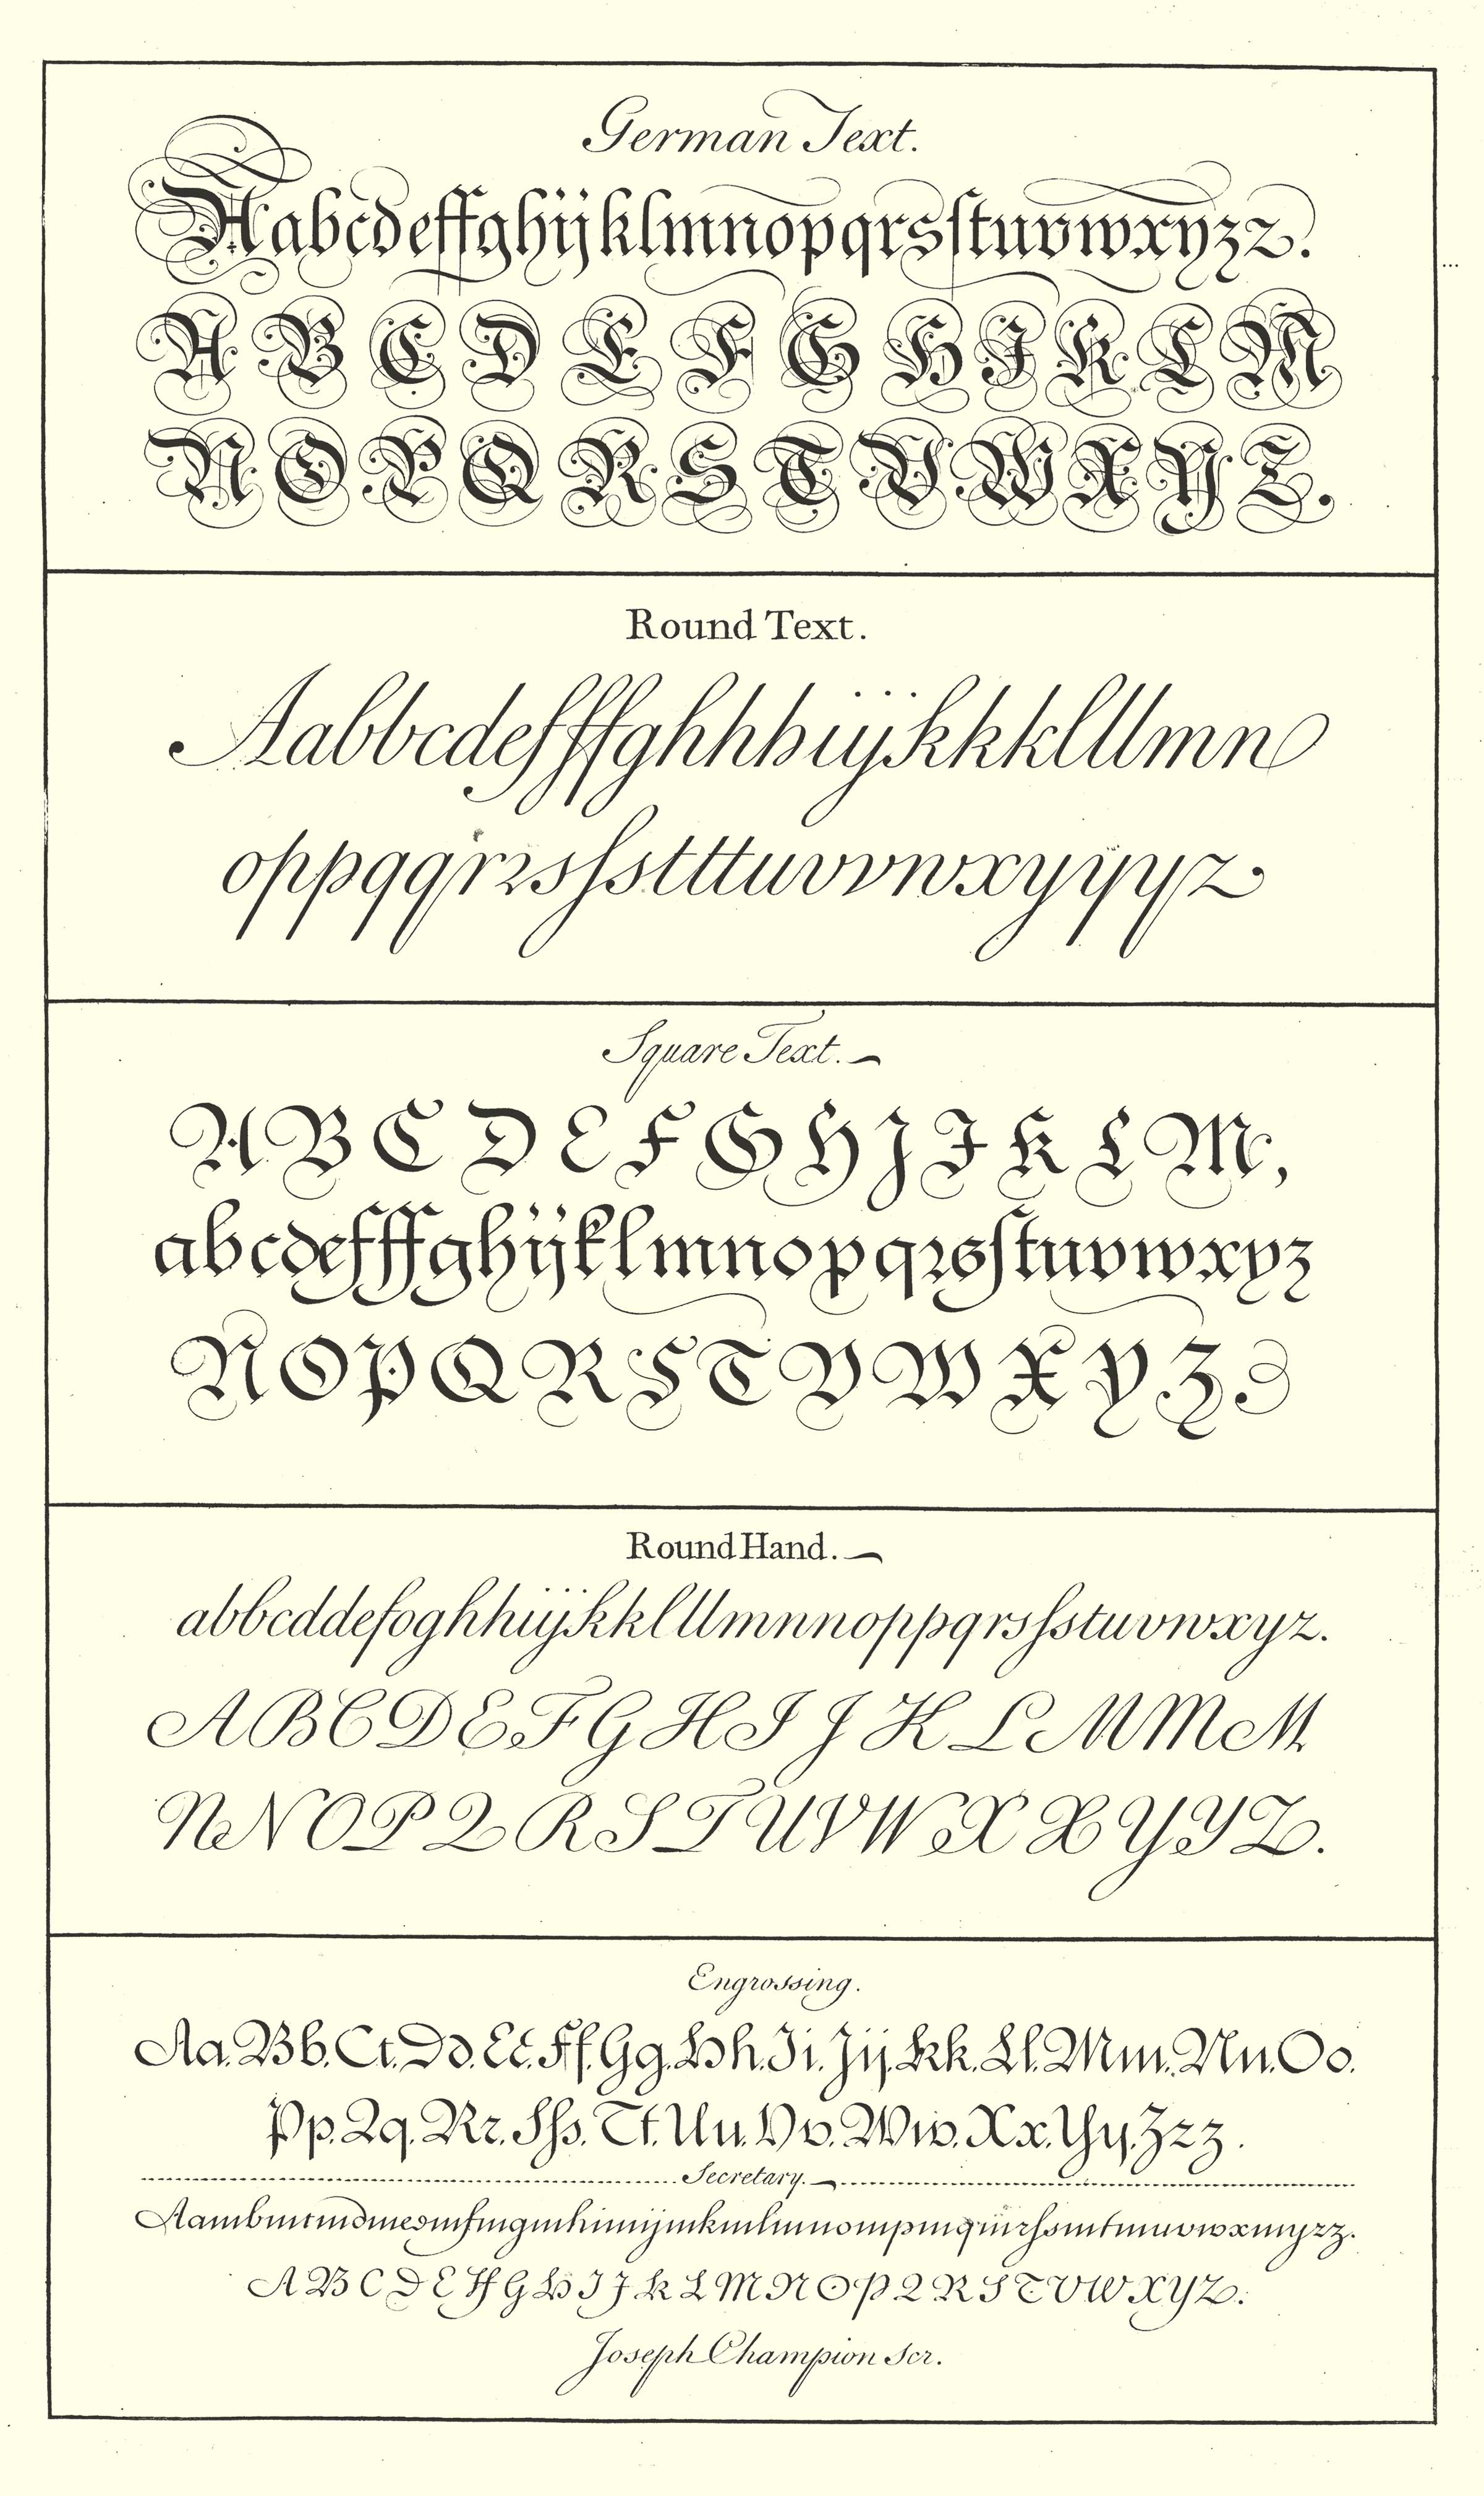 German Text.
Aabcdeffghijklmnopqrsſtuvwxyzz.
A B C D E F G H I K L M
N O P Q R S T V W X Y Z.
Round Text.
Aabbcdefffghhhiijkkkklllmn
oppqqrrzsſstttuvvwxyyyyz
Square Text.
A B C D E F G H J I K L M,
abcdefffghijklmnopqrzsſtuvwxyz
N O P Q R S T V W X Y Z Z
Round Hand.
abbcddefoghhhijkkklllmnnnoppqrsſstuvwxyz.
A B C D E F G H I J K L M M M
N N O P Q R S T U V W X X Y Y Z.
Engrossing.
Aa. Bb. Cc. Dd. Ee. Ff. Gg. Hh. Ii. Jj. Kk. Ll. Mm. Nn. Oo.
Pp. Qq. Rr. Sſs. Tt. Uu. Vv. Ww. Xx. Yy. Zzz.
Secretary.
Aambmcmdmemfmgmhimijmkmlmnompmqmrſsmtmuvwxmyzz.
A B C D E F G H I J K L M N O P Q R S T V W X Y Z.
Joseph Champion Scr.